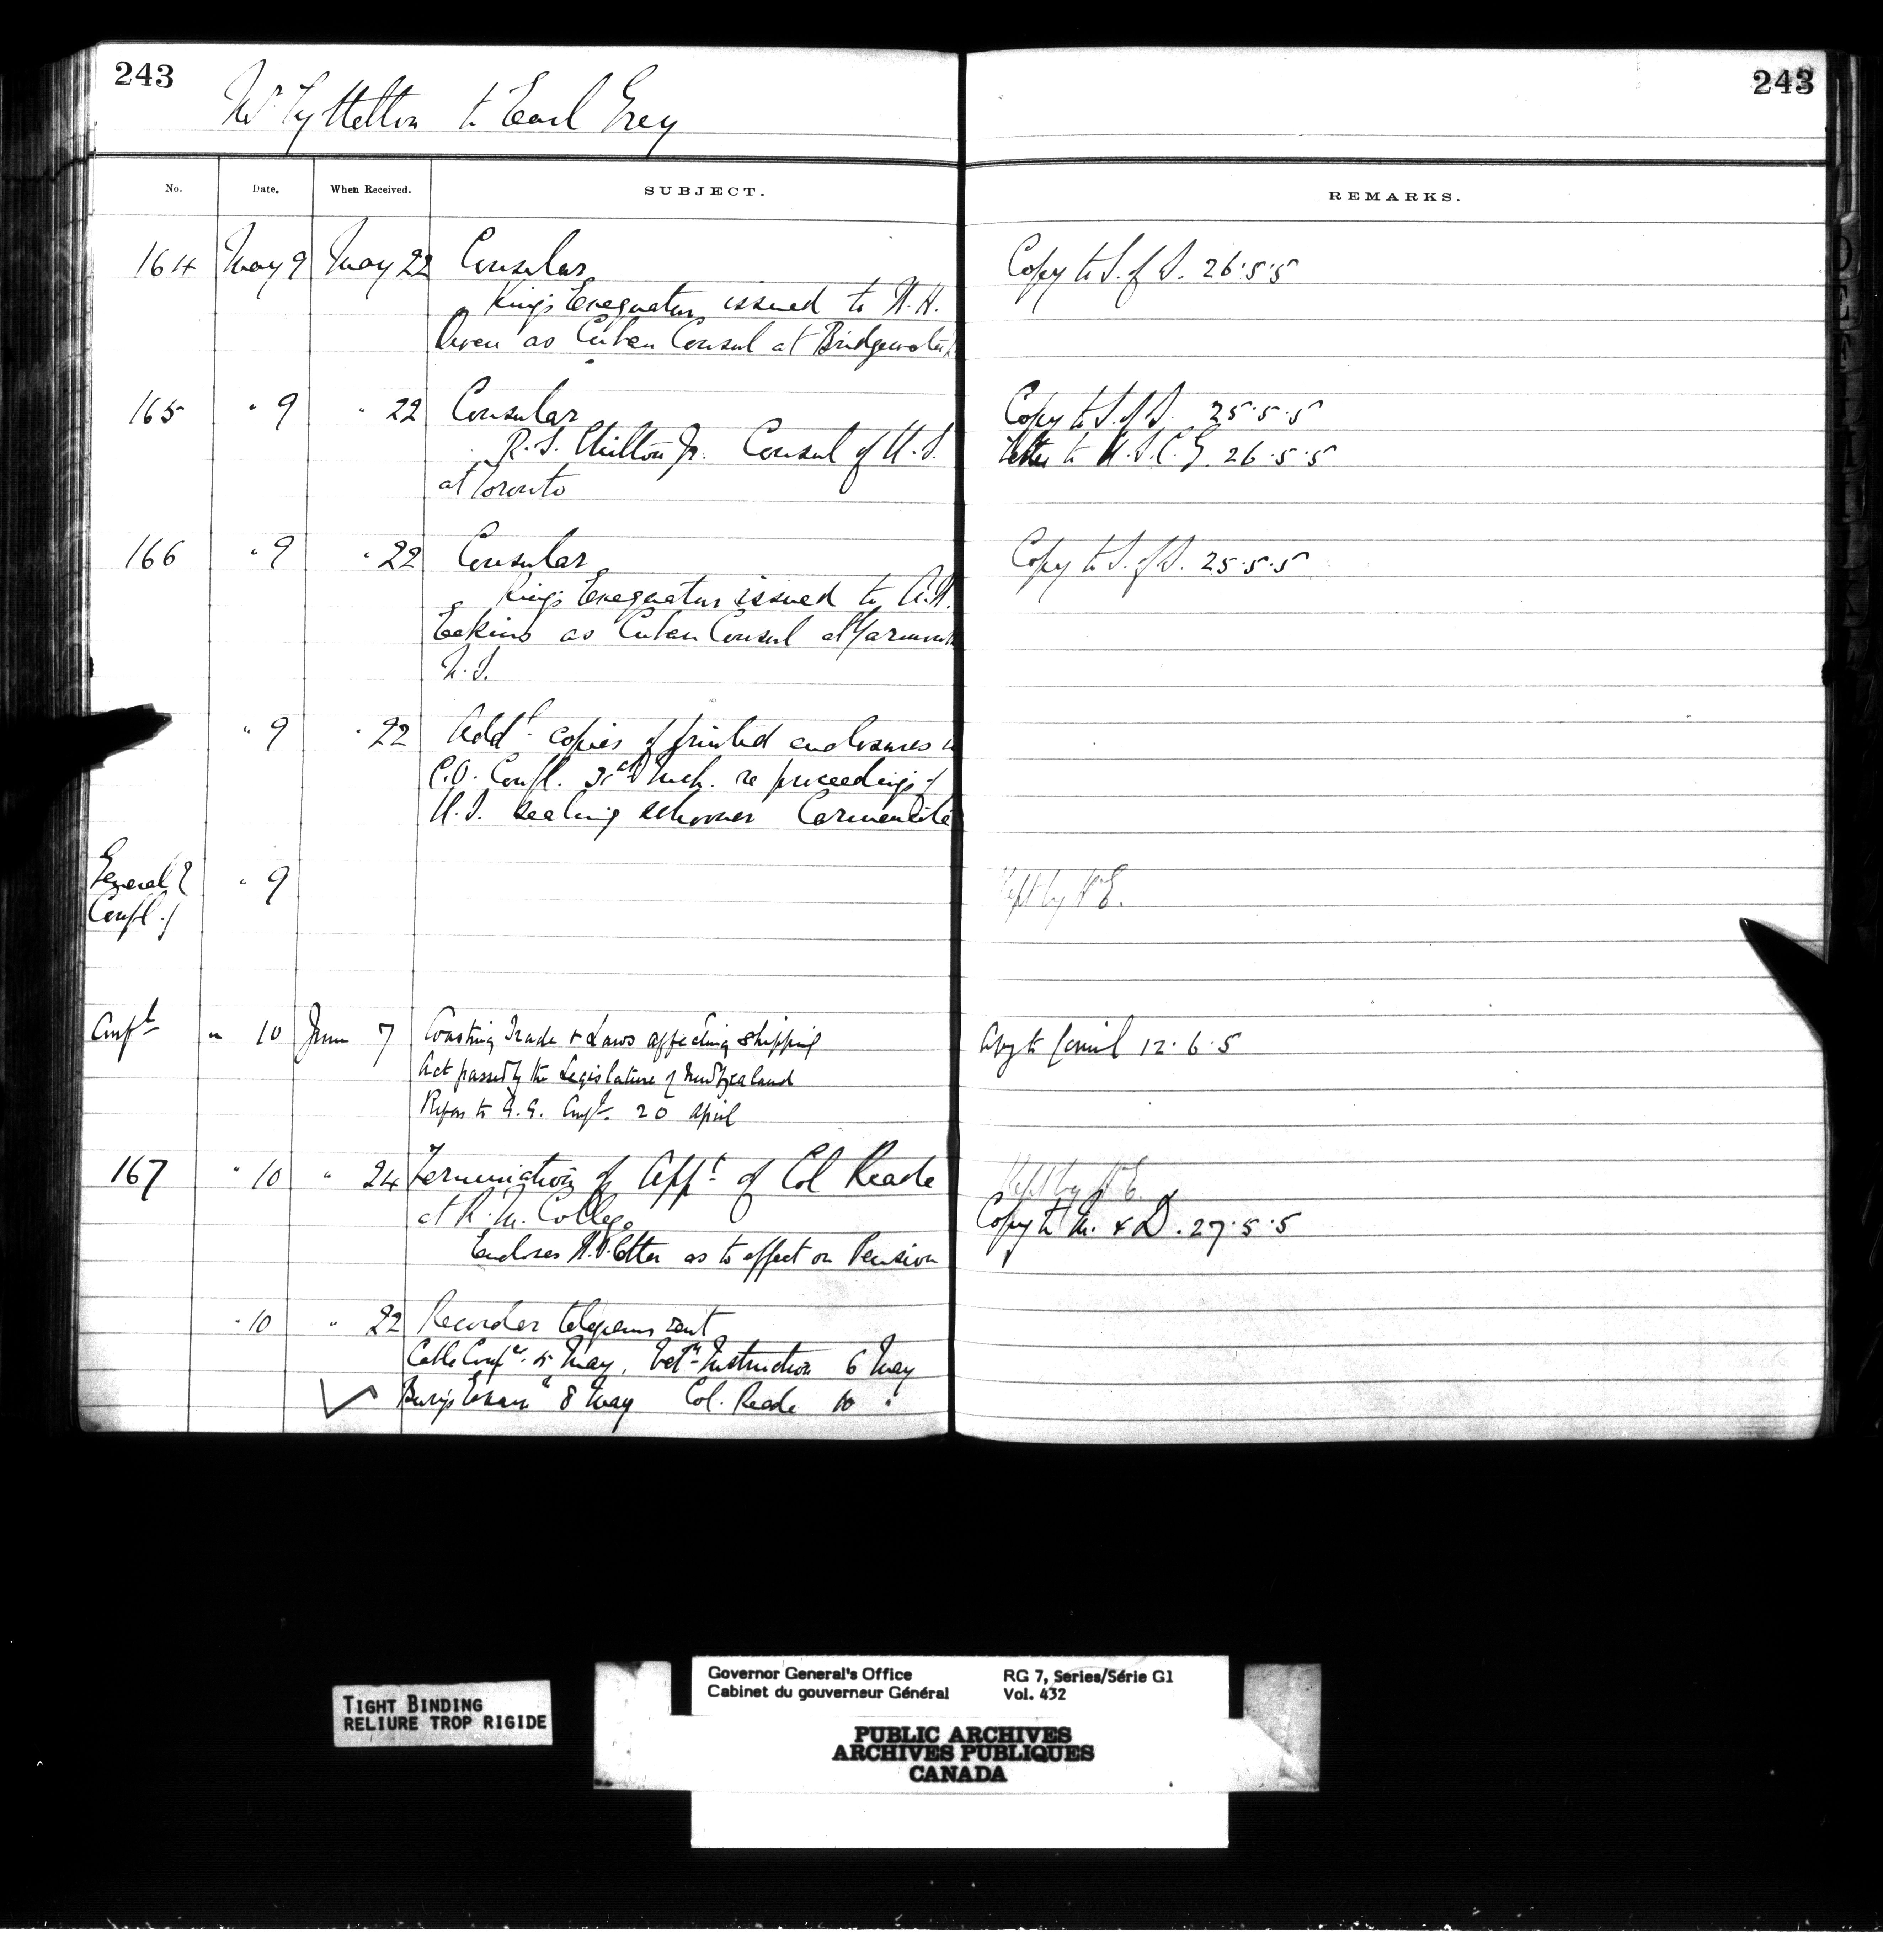 243
243
Mr Lyttelton to Earl Grey
No. Date. When Received. SUBJECT. REMARKS.
164 May 9 May 22 Consular Copy to S. of S. 26.5.5
King's Exequatur issued to W. H.
Owen as Cuban Consul at Bridgewater
165 " 9 " 22 Consular Copy to S. of S. 25.5.5
R. S. Chilton Jr. Consul of U.S. Letter to U.S.C.G. 26.5.5
at Toronto
166 " 9 " 22 Consular Copy to S. of S. 25.5.5
King's Exequatur issued to A. W.
Eakins as Cuban Consul at Yarmouth
N.S.
" 9 " 22 Addl. copies of printed enclosures in
C.O. Confl. 31st Mch. re proceedings of
U.S. sealing schooner Carmencita
General & " 9 Kept by H.E.
Confl.
Confl " 10 June 7 Coasting Trade & Laws affecting Shipping Copy to Council 12.6.5
Act passed by the Legislature of New Zealand
Refers to G.G. Confl. 20 April
167 " 10 " 24 Termination of Appt. of Col Reade Kept by H.E.
at R. M. College Copy to M. & D. 27.5.5
Encloses W.O. letter as to effect on Pension
" 10 " 22 Recorder telegrams sent
Cable Confce. 5 May, Instruction 6 May
8 May Col. Reade 10 "
TIGHT BINDING
RELIURE TROP RIGIDE
Governor General's Office RG 7, Series/Série G1
Cabinet du gouverneur Général Vol. 432
PUBLIC ARCHIVES
ARCHIVES PUBLIQUES
CANADA